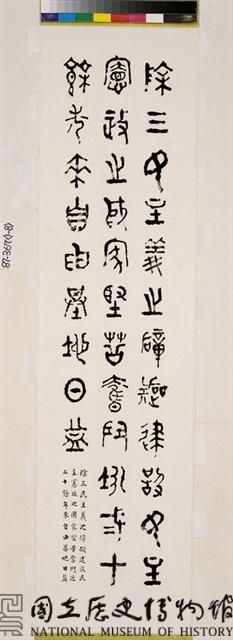 除三民主義之障礙建設民主
憲政之國家堅苦奮鬥近二十
餘年來自由基地日益
除三民主義之障礙建設民
主憲政之國家堅苦奮鬥近
二十餘年來自由基地日益
國立歷史博物館
NATIONAL MUSEUM OF HISTORY